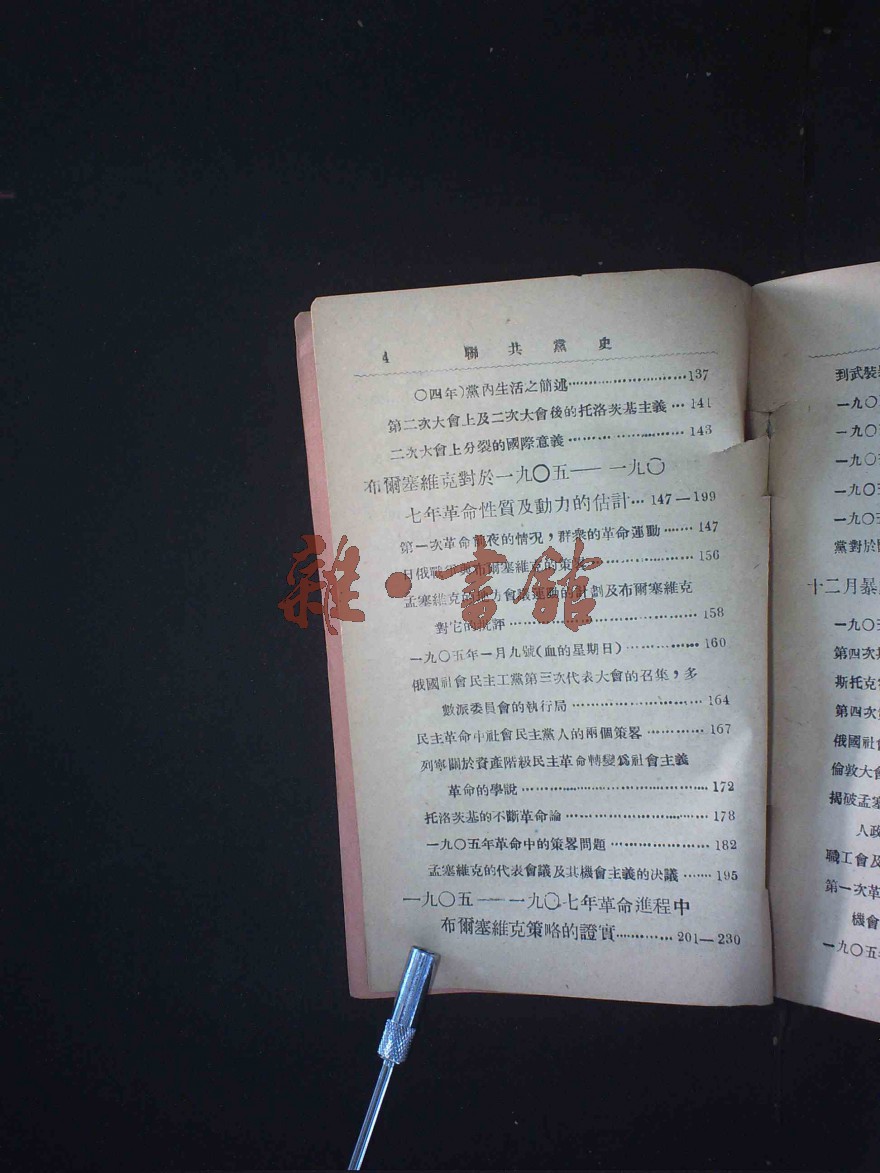 4 聯共黨史
〇四年)黨內生活之簡述……………………137
第二次大會上及二次大會後的托洛茨基主義…141
二次大會上分裂的國際意義……………………143
布爾塞維克對於一九〇五——一九〇
七年革命性質及動力的估計…147—199
第一次革命前夜的情況，群衆的革命運動……147
日俄戰爭與布爾塞維克的策畧…………………156
孟塞維克的地方會議運動的計劃及布爾塞維克
對它的批評………………………………158
一九〇五年一月九號(血的星期日)……………160
俄國社會民主工黨第三次代表大會的召集，多
數派委員會的執行局……………………164
民主革命中社會民主黨人的兩個策畧…………167
列寧關於資產階級民主革命轉變爲社會主義
革命的學說………………………………172
托洛茨基的不斷革命論…………………………178
一九〇五年革命中的策畧問題…………………182
孟塞維克的代表會議及其機會主義的決議……195
一九〇五——一九〇七年革命進程中
布爾塞維克策略的證實…………201—230
到武裝
一九〇
一九〇
一九〇
一九〇
一九〇五
黨對於
十二月暴
一九〇五
第四次
斯托克
第四次
俄國社會
倫敦大會
揭破孟塞
人政
職工會及
第一次革
機會
一九〇五
雜·書館